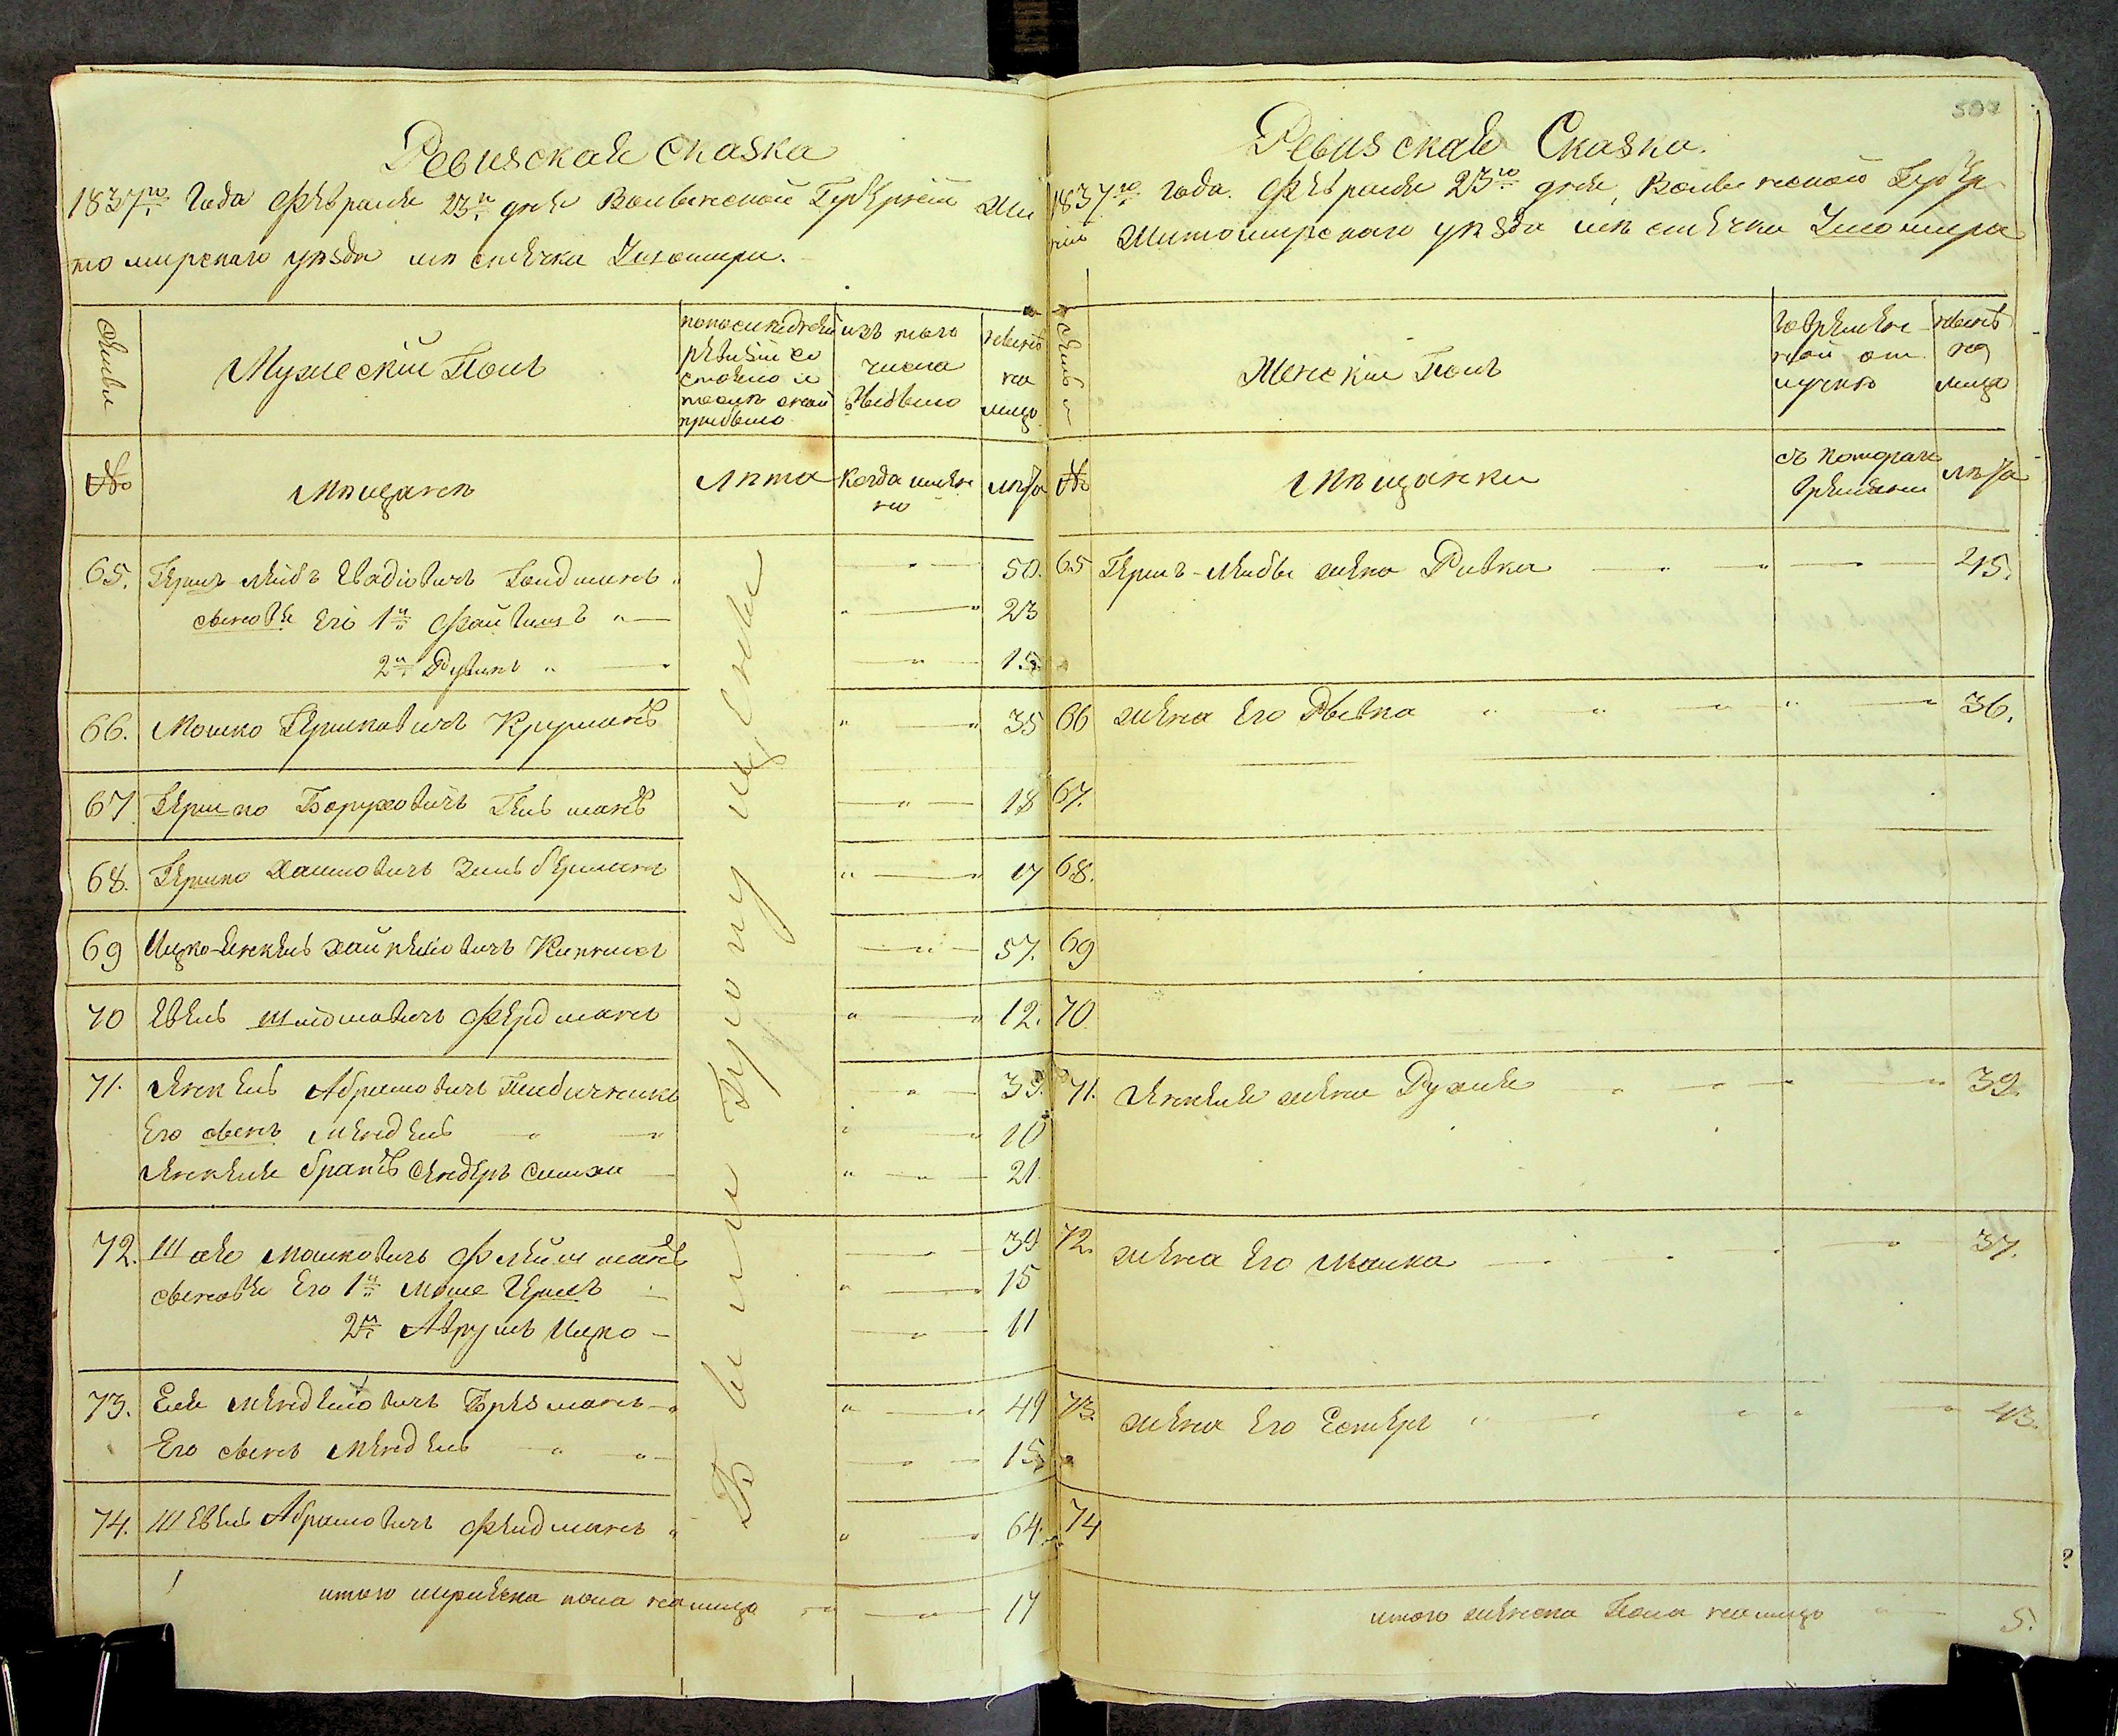 Ревизская сказка
1837го Года Февраля 23го дня Волынской Губерніи Жи
томирского уѣзда мѣстечка
Семьи
Мужескій Полъ
по последней
ревизіи со
стояло и
послѣ оной
прибыло
изъ того
числа
выбыло
ныне
на
лицо
№
Мѣщанъ
Лѣта
Когда имян
но
лѣта
65. Гершъ Лейбъ Іовадіовичъ Ландманъ 50.
сыновья его 1й Файвишъ 23
2й Рувинъ 15
66. Мошко Гершковичъ Круманъ 35
67 Гершко Боруховичъ Гельманъ 18
68. Гершко Хаимовичъ Зильберманъ 17
69 Ицко-Янкель Хайкелiовичъ 57.
70 Евель Фердманъ 12.
71. Янкель Абрамовичъ 39.
Его сынъ Мендель 10
Янкеля братъ Сендеръ Симха 21.
72. Шае Мошковичъ Флейшманъ 39
сыновья Его 1й Моше Гершъ 15
2й Аврумъ Ицко 11
73. Еля Менделіовичъ Брезманъ 49
Его сынъ Мендель 15
74. Шевель Абрамовичъ Фельдманъ 64.
итого мужеска пола налицо 17
Ревизская Сказка.
1837го года. Февраля 23го дня, Волынской Губер
ніи Житомирского уѣзда мѣстечка
Семьи
Женскій Полъ
во времен
ной от
лучкѣ
ныне
на
лицо
№
Мѣщанки
съ котораго
времени
лѣта
65 Гершъ-Лейбы жена Ривка 45.
66 жена Его Рывка 36.
67.
68.
69
70
71. Янкеля жена Рухля 39.
72. жена Его Малка 37.
73. жена Его Естеръ 43.
74
итого женска Пола налицо 5.